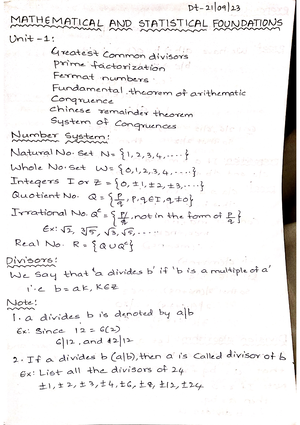 Dt-21/09/23
MATHEMATICAL AND STATISTICAL FOUNDATIONS
Unit-1:
Greatest Common divisors
prime factorization
Fermat numbers.
Fundamental theorem of arithematic
Congruence
chinese remainder theorem
System of Congruences
Number System:
Natural No. Set N = {1,2,3,4,.....}
Whole No. Set W = {0,1,2,3,.....}
Integers I or Z = {0, ±1, ±2, ±3,.....}
Quotient No. Q = {p/q, p,q∈I, q≠0}
Irrational No. Qᶜ = {p/q, not in the form of p/q}
Ex: √2, ∛5, √3, √5,.....
Real No. R = {Q∪Qᶜ}
Divisors:
We say that 'a divides b' if 'b is a multiple of a'
i.e b = ak, k∈z
Note:
1. a divides b is denoted by a|b
Ex: Since 12 = 6(2)
6|12, and 2|12
2. If a divides b (a|b), then a is called divisor of b.
Ex: List all the divisors of 24
±1, ±2, ±3, ±4, ±6, ±8, ±12, ±24